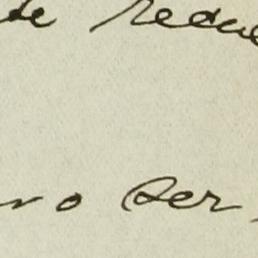 de reduc
no ser,